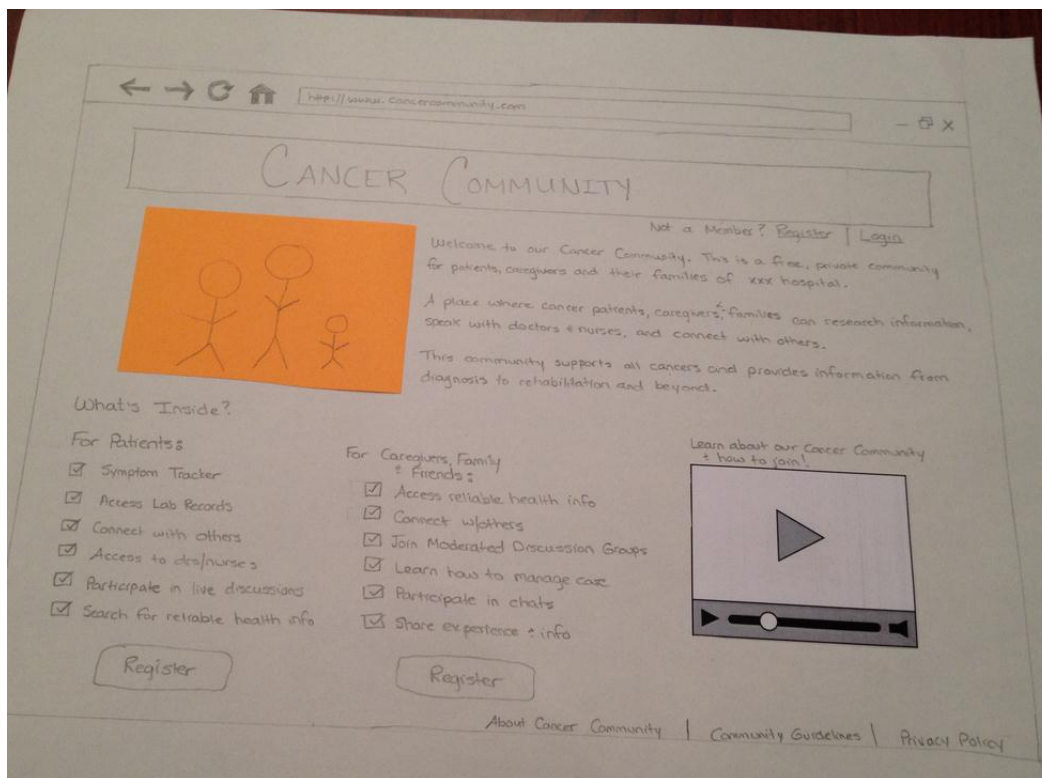 http://www.cancercommunity.com
CANCER COMMUNITY
Not a Member? Register | Login
Welcome to our Cancer Community. This is a free, private community
for patients, caregivers and their families of xxx hospital.
A place where cancer patients, caregivers, & families can research information,
speak with doctors & nurses, and connect with others.
This community supports all cancers and provides information from
diagnosis to rehabilitation and beyond.
What's Inside?
For Patients:
Symptom Tracker
Access Lab Records
Connect with others
Access to drs/nurses
Participate in live discussions
Search for reliable health info
Register
For Caregivers, Family
& Friends:
Access reliable health info
Connect w/others
Join Moderated Discussion Groups
Learn how to manage care
Participate in chats
Share experience & info
Register
Learn about our Cancer Community
& how to join!
About Cancer Community | Community Guidelines | Privacy Policy